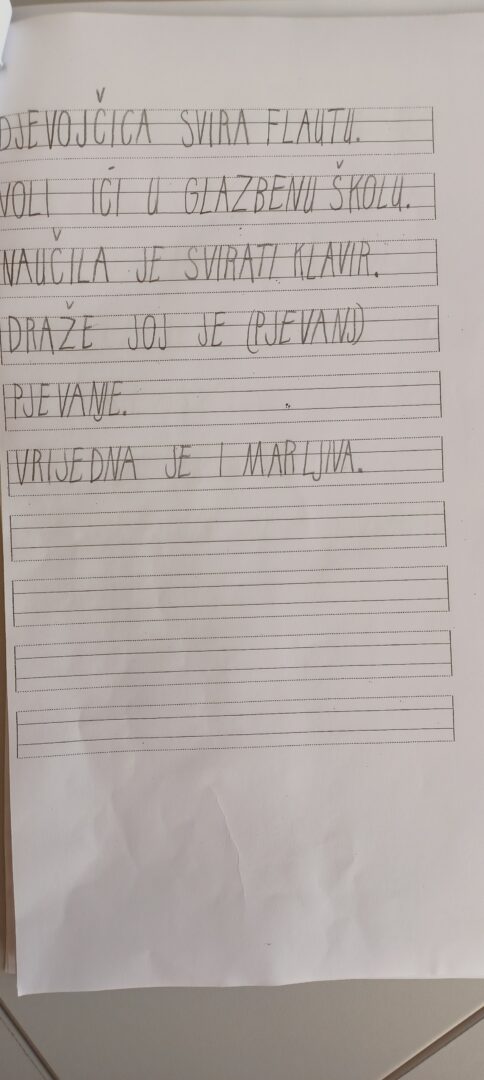 DJEVOJČICA SVIRA FLAUTU.
VOLI IĆI U GLAZBENU ŠKOLU.
NAUČILA JE SVIRATI KLAVIR.
DRAŽE JOJ JE (PJEVANJ)
PJEVANJE.
VRIJEDNA JE I MARLJIVA.